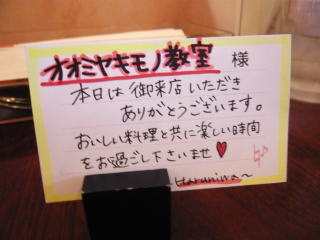 オオミヤキモノ教室 様
本日は御来店いただき
ありがとうございます。
おいしい料理と共に楽しい時間
をお過ごし下さいませ♥
Haruniwa~